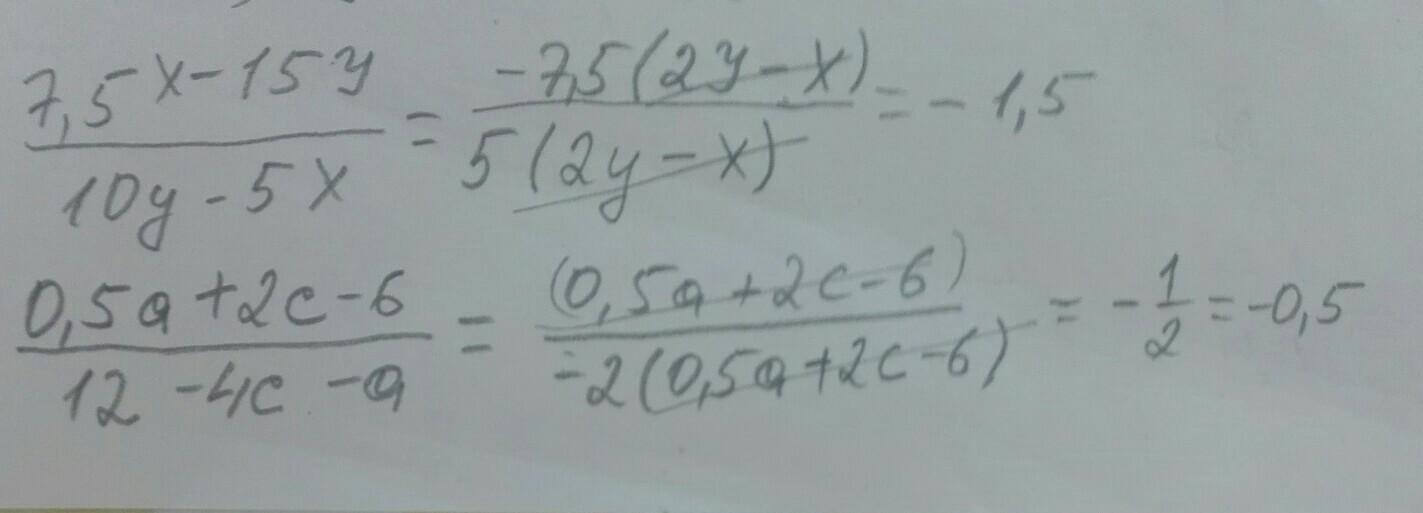 (7,5x-15y)/(10y-5x) = (-7,5(2y-x))/(5(2y-x)) = -1,5
(0,5a+2c-6)/(12-4c-a) = ((0,5a+2c-6))/(-2(0,5a+2c-6)) = -1/2 = -0,5